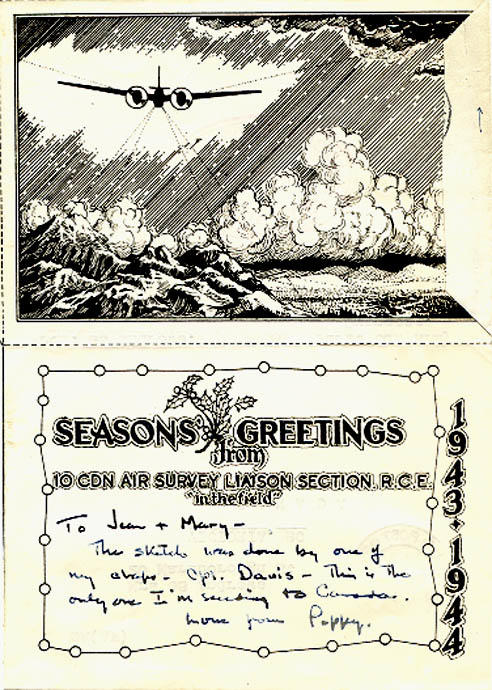 SEASONS' GREETINGS
from
10 CDN AIR SURVEY LIAISON SECTION, R.C.E.
"in the field"
1943·1944
To Jean + Mary—
The sketch was done by one of
my chaps - Cpl. Davis - This is the
only one I'm sending to Canada.
more from Poppy.